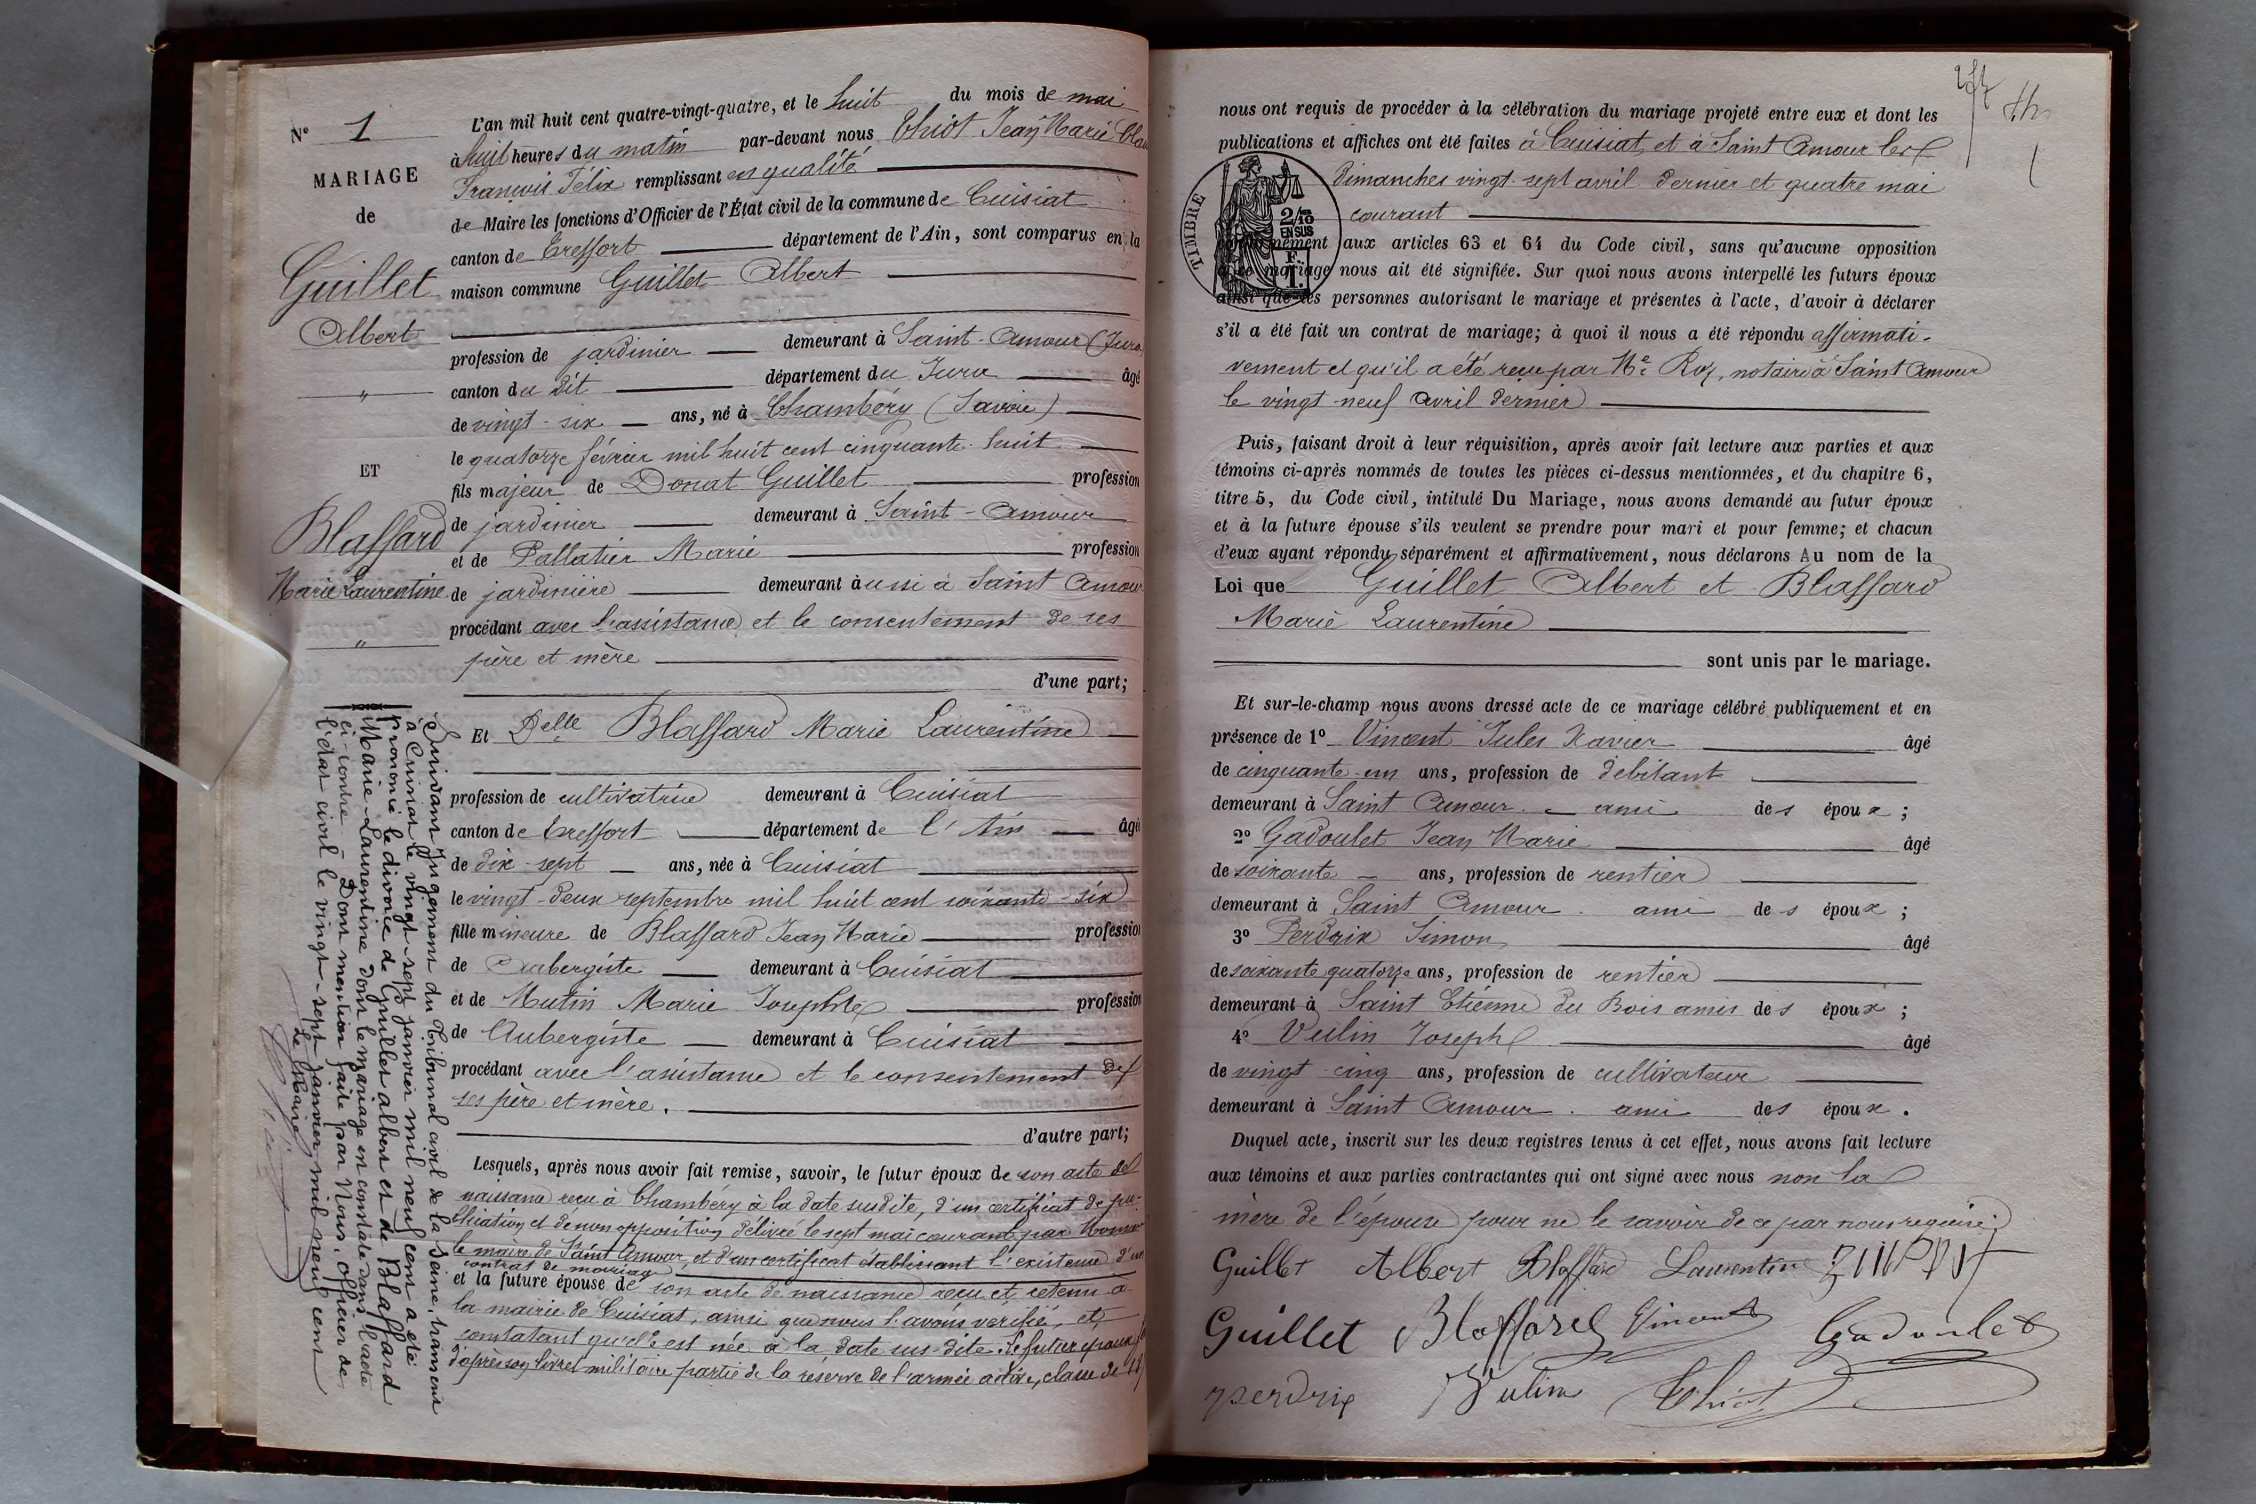 N° 1
MARIAGE
de
Guillet
Albert
"
ET
Blaffard
Marie Laurentine
"
L'an mil huit cent quatre-vingt-quatre, et le huit du mois de mai
à huit heures du matin par-devant nous Thiot Jean Marie
François Félix remplissant en qualité
de Maire les fonctions d'Officier de l'État civil de la commune de Cuisiat
canton de Treffort département de l'Ain, sont comparus en la
maison commune Guillet Albert
profession de jardinier demeurant à Saint-Amour (Jura
canton du dit département du Jura âgé
de vingt-six ans, né à Chambéry (Savoie)
le quatorze février mil huit cent cinquante-huit
fils majeur de Donat Guillet profession
de jardinier demeurant à Saint-Amour
et de Pallatier Marie profession
de jardinière demeurant aussi à Saint Amour
procédant avec l'assistance et le consentement de ses
père et mère
d'une part;
Et Delle Blaffard Marie Laurentine
profession de cultivatrice demeurant à Cuisiat
canton de Treffort département de l'Ain âgé
de dix-sept ans, née à Cuisiat
le vingt-deux septembre mil huit cent soixante-six
fille mineure de Blaffard Jean Marie profession
de Aubergiste demeurant à Cuisiat
et de Mutin Marie Josephte profession
de Aubergiste demeurant à Cuisiat
procédant avec l'assistance et le consentement de
ses père et mère.
d'autre part;
Lesquels, après nous avoir fait remise, savoir, le futur époux de son acte de
naissance reçu à Chambéry à la date susdite, d'un certificat de pu-
blication et de non opposition délivré le sept mai courant par Monsr
le maire de Saint Amour, et d'un certificat établissant l'existence d'un
contrat de mariage
et la future épouse de son acte de naissance reçu et retenu à
la mairie de Cuisiat, ainsi que nous l'avons vérifié, et
constatant qu'elle est née à la date sus-dite. Le futur époux
d'après son livret militaire partie de la réserve de l'armée active, classe de
Suivant Jugement du Tribunal civil de la Seine, transcrit
à Cuisiat le vingt-sept janvier mil neuf cent a été
prononcé le divorce de Guillet albert et de Blaffard
Marie-Laurentine dont le mariage est constaté dans l'acte
ci-contre - Dont mention faite par Nous, officier de
l'état civil le vingt-sept janvier mil neuf cent
Le Maire
nous ont requis de procéder à la célébration du mariage projeté entre eux et dont les
publications et affiches ont été faites à Cuisiat et à Saint Amour les
dimanches vingt-sept avril dernier et quatre mai
courant
TIMBRE
2/10
EN SUS
F.
1.
conformément aux articles 63 et 64 du Code civil, sans qu'aucune opposition
à ce mariage nous ait été signifiée. Sur quoi nous avons interpellé les futurs époux
ainsi que les personnes autorisant le mariage et présentes à l'acte, d'avoir à déclarer
s'il a été fait un contrat de mariage; à quoi il nous a été répondu affirmati-
vement et qu'il a été reçu par Me Roz, notaire à Saint Amour
le vingt-neuf avril dernier
Puis, faisant droit à leur réquisition, après avoir fait lecture aux parties et aux
témoins ci-après nommés de toutes les pièces ci-dessus mentionnées, et du chapitre 6,
titre 5, du Code civil, intitulé Du Mariage, nous avons demandé au futur époux
et à la future épouse s'ils veulent se prendre pour mari et pour femme; et chacun
d'eux ayant répondu séparément et affirmativement, nous déclarons Au nom de la
Loi que Guillet Albert et Blaffard
Marie Laurentine
sont unis par le mariage.
Et sur-le-champ nous avons dressé acte de ce mariage célébré publiquement et en
présence de 1° Vincent Jules Xavier âgé
de cinquante-un ans, profession de débitant
demeurant à Saint Amour ami des époux;
2° Gadoulet Jean Marie âgé
de soixante ans, profession de rentier
demeurant à Saint Amour ami des époux;
3° Perdrix Simon âgé
de soixante quatorze ans, profession de rentier
demeurant à Saint Etienne du Bois amis des époux;
4° Vulin Joseph âgé
de vingt-cinq ans, profession de cultivateur
demeurant à Saint Amour ami des époux.
Duquel acte, inscrit sur les deux registres tenus à cet effet, nous avons fait lecture
aux témoins et aux parties contractantes qui ont signé avec nous non la
mère de l'épouse pour ne le savoir de ce par nous requise.
Guillet Albert Blaffard Laurentine
Guillet Blaffard Vincent Gadoulet
perdrix Vulin Thiot